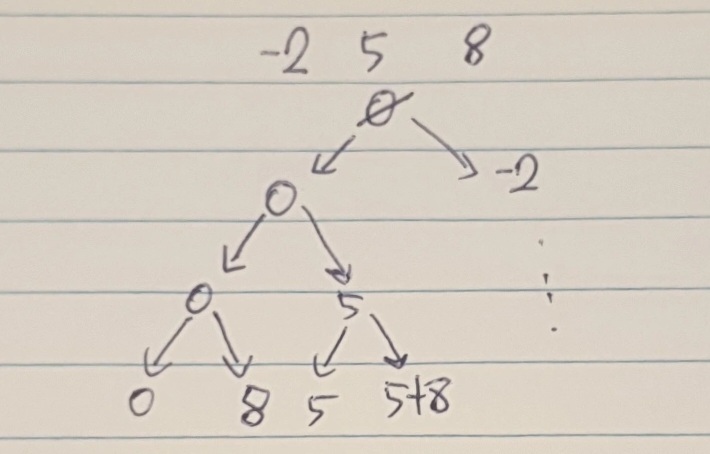 -2 5 8
∅
0 -2
0 5
0 8 5 5+8